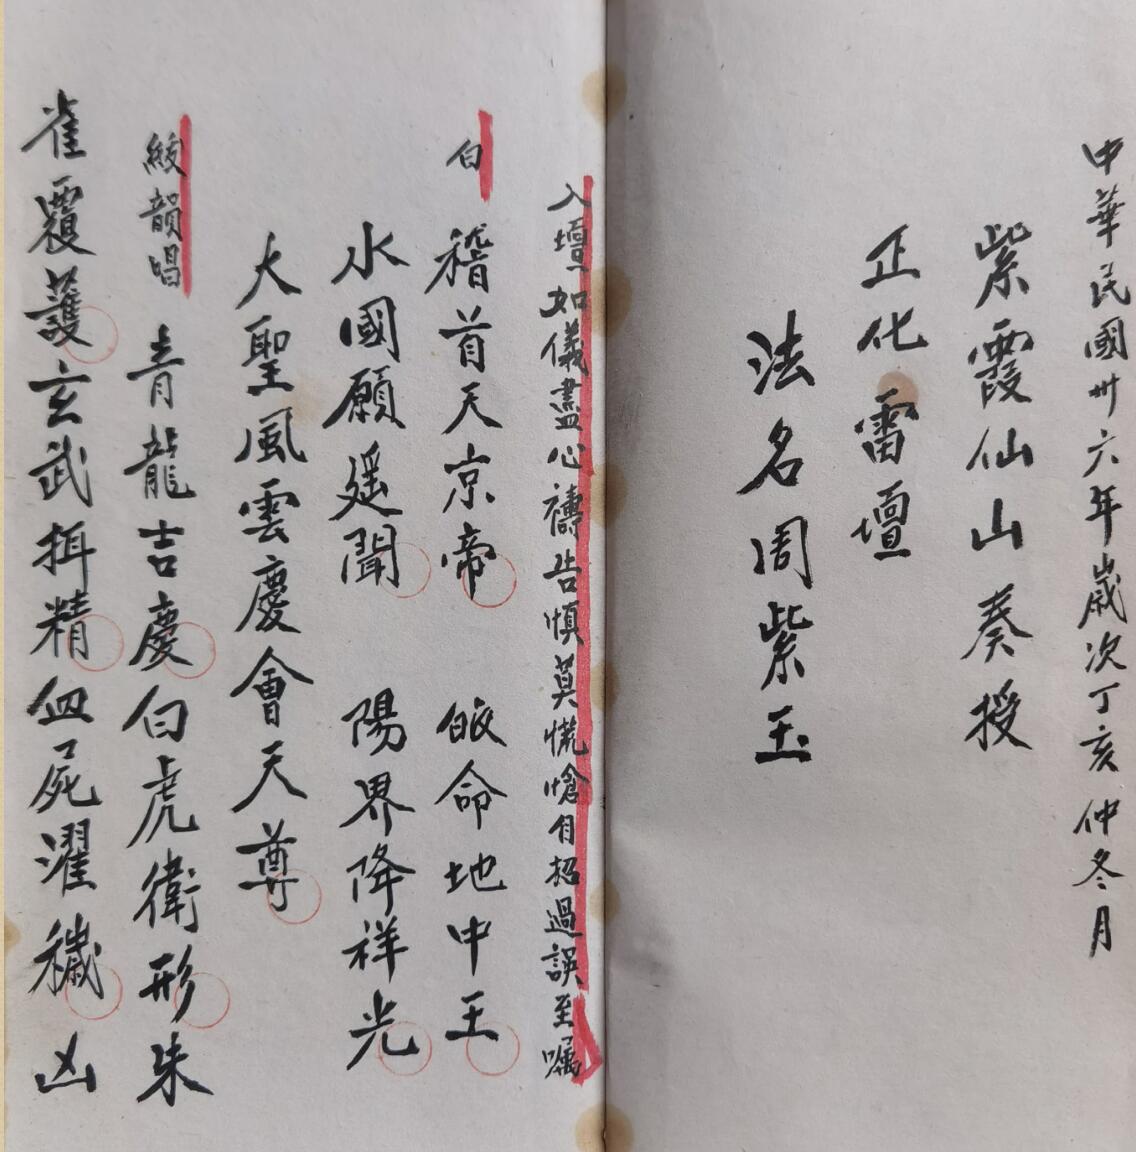 中華民國卅六年歲次丁亥仲冬月
紫霞仙山奏授
正化雷壇
法名周紫玉
入壇如儀盡心禱告慎莫慌愴自招過誤至囑
白 稽首天京帝 皈命地中王
水國願遥聞 陽界降祥光
大聖風雲慶會天尊
緩韻唱 青龍吉慶白虎衛形朱
雀覆護玄武揖精血屍濯穢凶